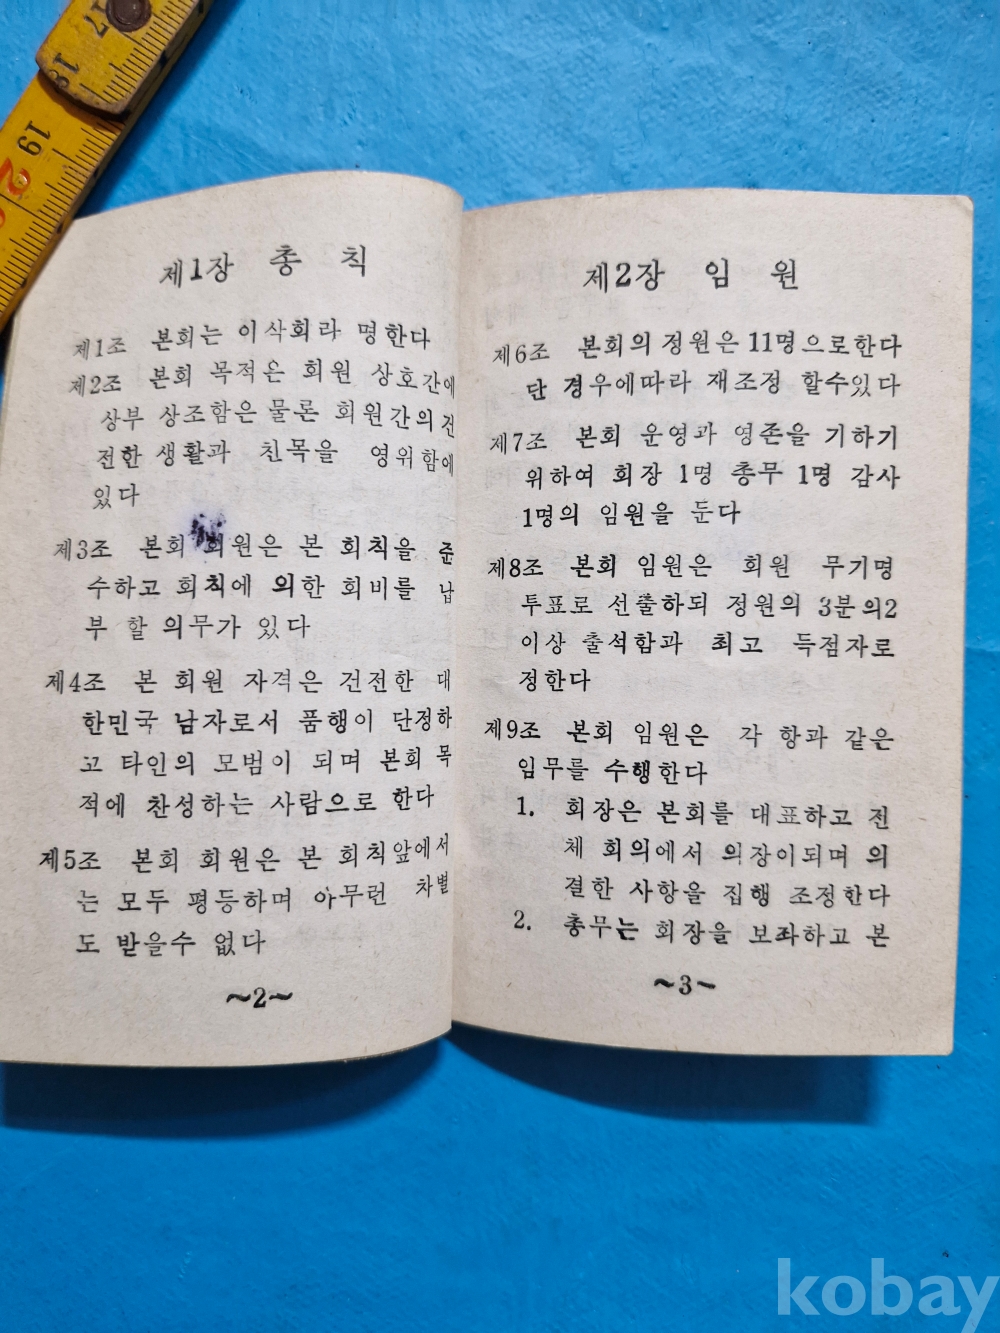 17
18
19
2
제1장 총 칙
제1조 본회는 이삭회라 명한다
제2조 본회 목적은 회원 상호간에
상부 상조함은 물론 회원간의 건
전한 생활과 친목을 영위함에
있다
제3조 본회 회원은 본 회칙을 준
수하고 회칙에 의한 회비를 납
부 할 의무가 있다
제4조 본 회원 자격은 건전한 대
한민국 남자로서 품행이 단정하
고 타인의 모범이 되며 본회 목
적에 찬성하는 사람으로 한다
제5조 본회 회원은 본 회칙앞에서
는 모두 평등하며 아무런 차별
도 받을수 없다
~2~
제2장 임 원
제6조 본회의 정원은 11명으로한다
단 경우에따라 재조정 할수있다
제7조 본회 운영과 영존을 기하기
위하여 회장 1명 총무 1명 감사
1명의 임원을 둔다
제8조 본회 임원은 회원 무기명
투표로 선출하되 정원의 3분의2
이상 출석함과 최고 득점자로
정한다
제9조 본회 임원은 각 항과 같은
임무를 수행한다
1. 회장은 본회를 대표하고 전
체 회의에서 의장이되며 의
결한 사항을 집행 조정한다
2. 총무는 회장을 보좌하고 본
~3~
kobay